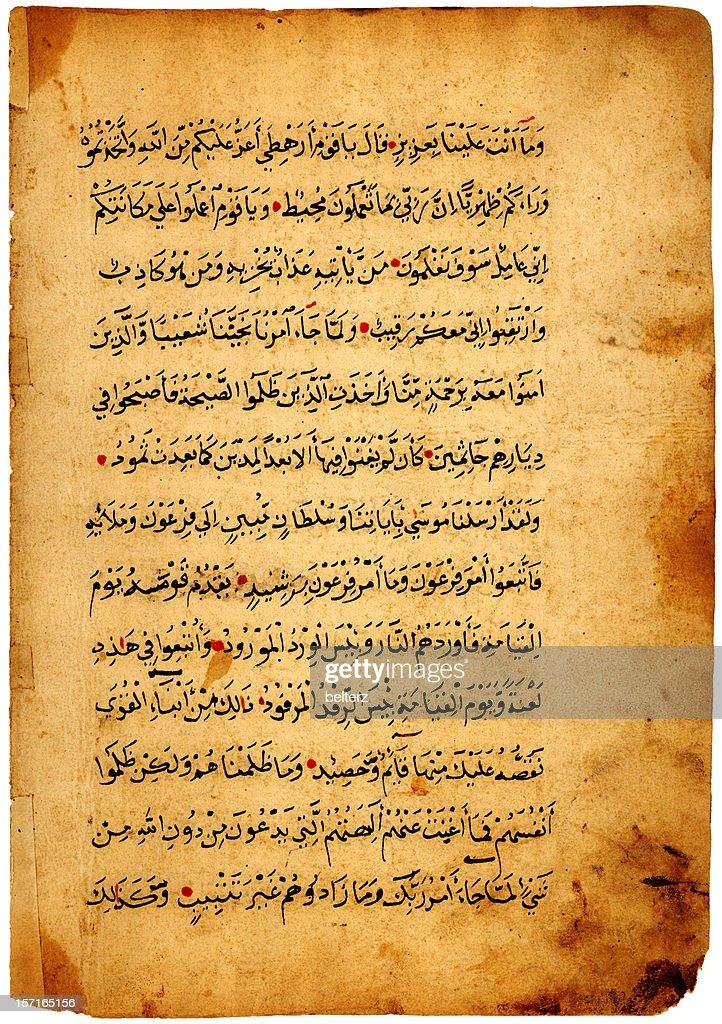 وَمَا أَنْتَ عَلَيْنَا بِعَزِيزٍ قَالَ يَا قَوْمِ أَرَهْطِي أَعَزُّ عَلَيْكُمْ مِنَ اللَّهِ وَاتَّخَذْتُمُوهُ
وَرَاءَكُمْ ظِهْرِيًّا إِنَّ رَبِّي بِمَا تَعْمَلُونَ مُحِيطٌ وَيَا قَوْمِ اعْمَلُوا عَلَى مَكَانَتِكُمْ
إِنِّي عَامِلٌ سَوْفَ تَعْلَمُونَ مَنْ يَأْتِيهِ عَذَابٌ يُخْزِيهِ وَمَنْ هُوَ كَاذِبٌ
وَارْتَقِبُوا إِنِّي مَعَكُمْ رَقِيبٌ وَلَمَّا جَاءَ أَمْرُنَا نَجَّيْنَا شُعَيْبًا وَالَّذِينَ
آمَنُوا مَعَهُ بِرَحْمَةٍ مِنَّا وَأَخَذَتِ الَّذِينَ ظَلَمُوا الصَّيْحَةُ فَأَصْبَحُوا فِي
دِيَارِهِمْ جَاثِمِينَ كَأَنْ لَمْ يَغْنَوْا فِيهَا أَلَا بُعْدًا لِمَدْيَنَ كَمَا بَعِدَتْ ثَمُودُ
وَلَقَدْ أَرْسَلْنَا مُوسَى بِآيَاتِنَا وَسُلْطَانٍ مُبِينٍ إِلَى فِرْعَوْنَ وَمَلَائِهِ
فَاتَّبَعُوا أَمْرَ فِرْعَوْنَ وَمَا أَمْرُ فِرْعَوْنَ بِرَشِيدٍ يَقْدُمُ قَوْمَهُ يَوْمَ
الْقِيَامَةِ فَأَوْرَدَهُمُ النَّارَ وَبِئْسَ الْوِرْدُ الْمَوْرُودُ وَأُتْبِعُوا فِي هَذِهِ
لَعْنَةً وَيَوْمَ الْقِيَامَةِ بِئْسَ الرِّفْدُ الْمَرْفُودُ ذَلِكَ مِنْ أَنْبَاءِ الْقُرَى
نَقُصُّهُ عَلَيْكَ مِنْهَا قَائِمٌ وَحَصِيدٌ وَمَا ظَلَمْنَاهُمْ وَلَكِنْ ظَلَمُوا
أَنْفُسَهُمْ فَمَا أَغْنَتْ عَنْهُمْ آلِهَتُهُمُ الَّتِي يَدْعُونَ مِنْ دُونِ اللَّهِ مِنْ
شَيْءٍ لَمَّا جَاءَ أَمْرُ رَبِّكَ وَمَا زَادُوهُمْ غَيْرَ تَتْبِيبٍ وَكَذَلِكَ
gettyimages
belterz
157165156